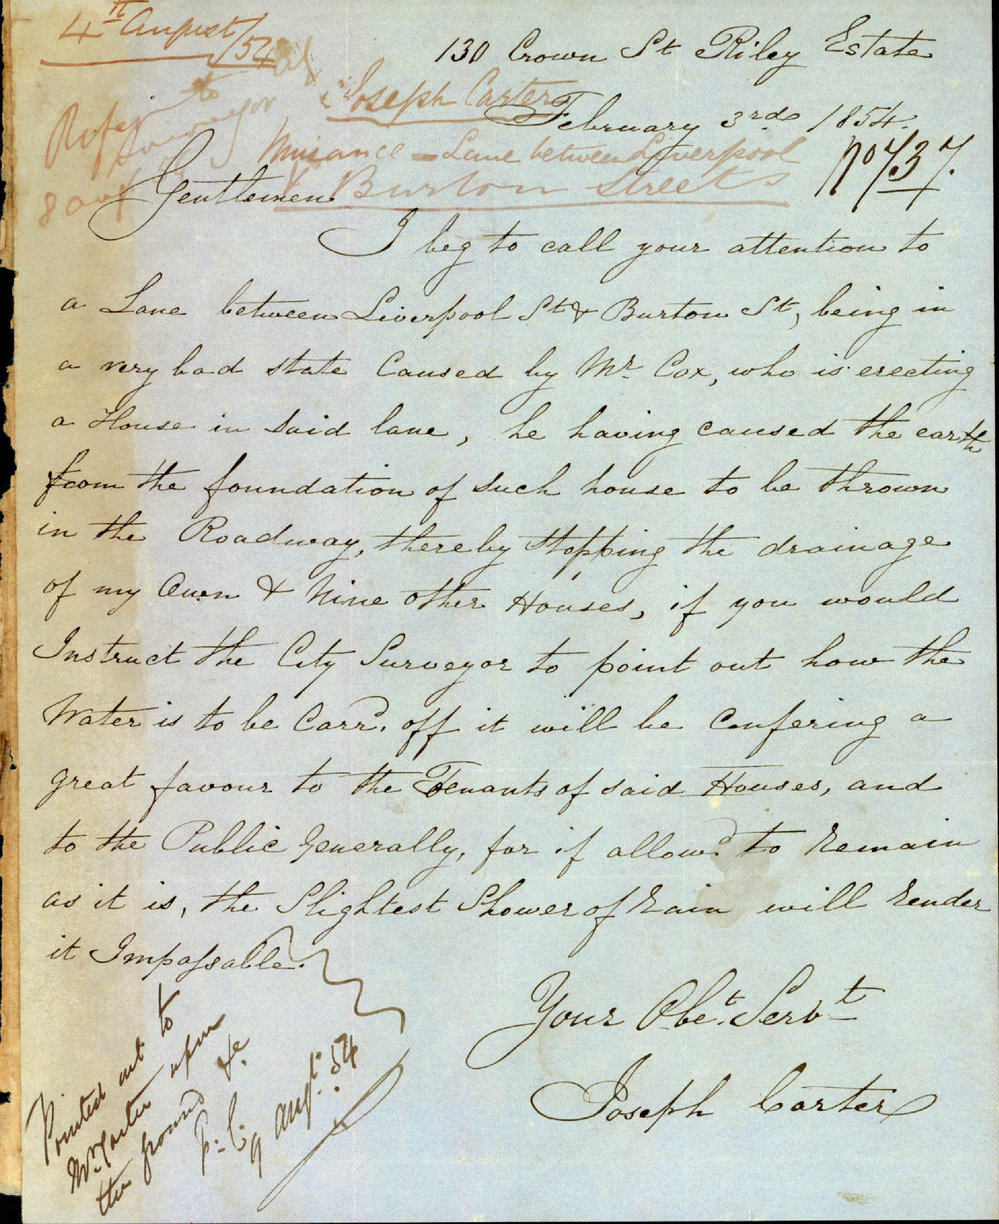 4th August/54
130 Crown St Riley Estate
Joseph Carter
February 3rd 1854.
Refer to
Surveyor
Nuisance - Lane between Liverpool
& Burton Streets
No 737.
Gentlemen
I beg to call your attention to
a Lane between Liverpool St & Burton St, being in
a very bad state Caused by Mr Cox, who is erecting
a House in Said lane, he having caused the earth
from the foundation of Such house to be thrown
in the Roadway, thereby Stopping the drainage
of my Own & Nine other Houses, if you would
Instruct the City Surveyor to point out how the
Water is to be Carrd. off it will be Confering a
great favour to the Tenants of said Houses, and
to the Public Generally, for if allowd to Remain
as it is, the Slightest Shower of Rain will Render
it Impassable.
Your Obet. Servt
Joseph Carter
Pointed out to
Mr Carter upon
the ground &c
9 Augt. 54